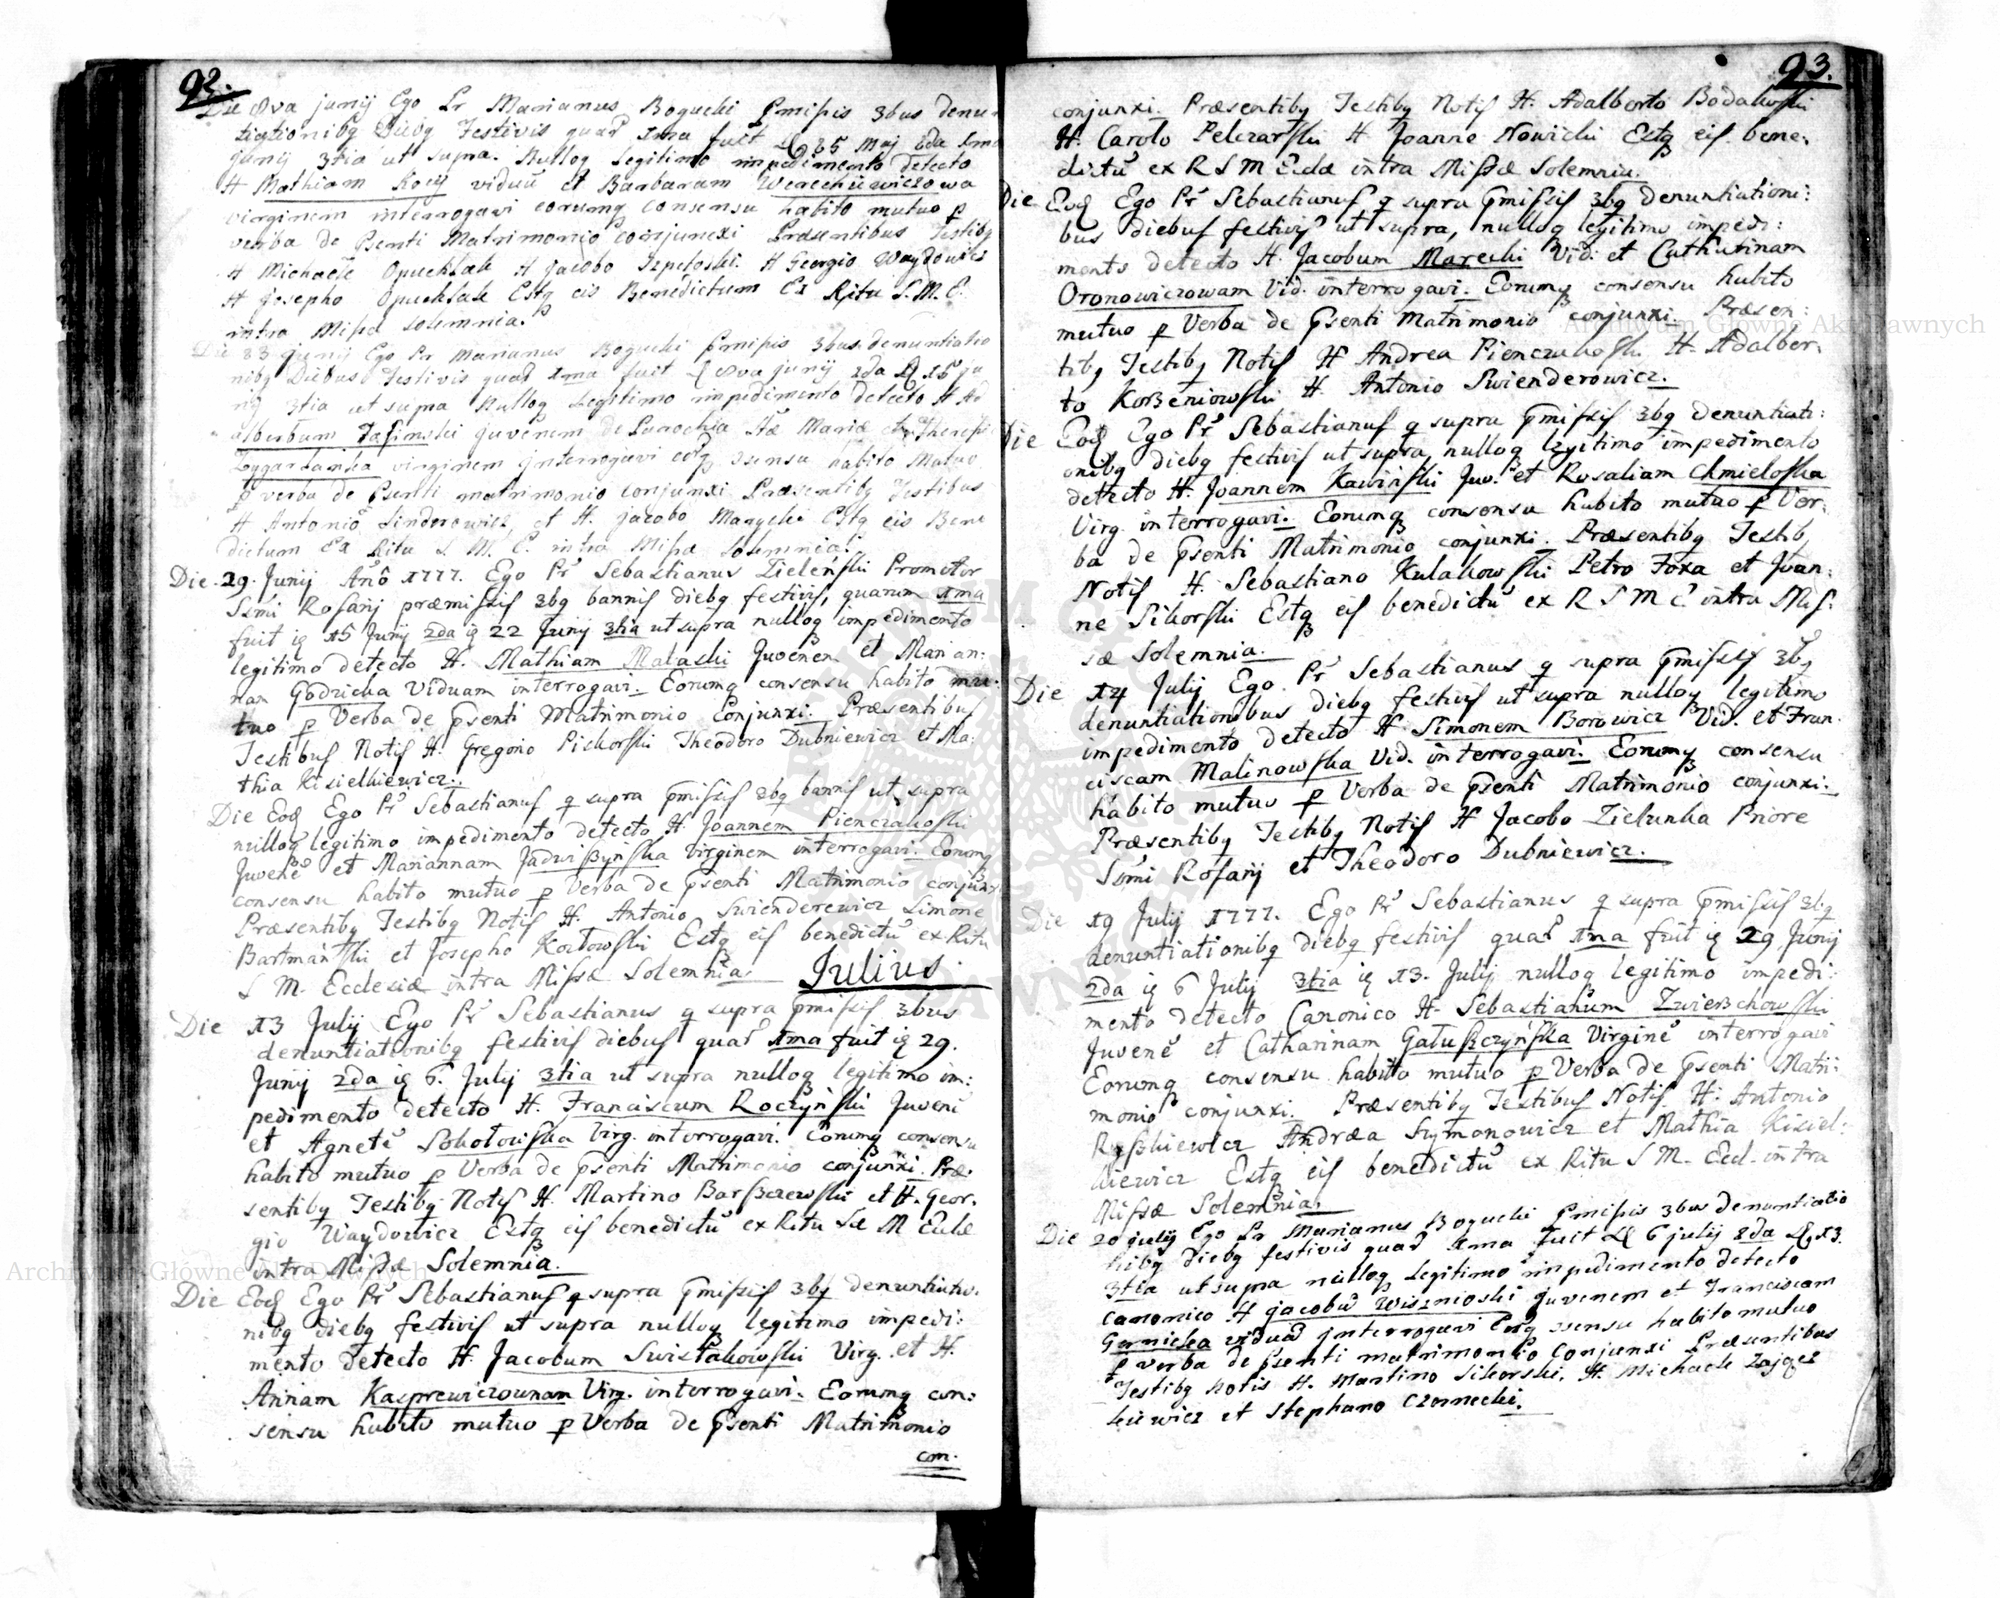 92.
Die 8va junij Ego Pr Marianus Bogucki Pmissis 3bus denun
tiationibq Diebq Festivis quaȓ 1ma fuit 25 Maj 2da 1ma
junij 3tia ut supra. Nulloq Legitimo impedimento detecto
H Mathiam Kocij viduū et Barbaram Werechiewiczowa
virginem interrogavi eorumq consensu habito mutuo p
verba de Psenti Matrimonio conjunxi Præsentibus Testibq
H Michaele Opuchlak H Jacobo H Georgio Waydowicz
H Josepho Opuchlak Estq eis Benedictum Ex Ritu S. M. E.
intra Missæ solemnia.
Die 22 junij Ego Pr Marianus Bogucki Pmissis 3bus denuntiatio
nibq Diebus Festivis quaȓ 1ma fuit 8va junij 2da 15 ju
nij 3tia ut supra Nulloq Legitimo impedimento detecto H Ad
albertum Jasinski juvenem de Parochia Stæ Mariæ et Theresi
virginem jnterrogavi eorq 3sensu habito Mutuo
p verba de Psenti matrimonio conjunxi Præsentibq Testibus
H Antonio et H. Jacobo Estq eis Bene
dictum Ex Ritu S. M. E. intra Missæ Solemnia.
Die 29. Junij Añô 1777. Ego Pr Sebastianus Zielenski Promotor
SSmi Rosarij præmissis 3bq bannis diebq festivis, quarum 1ma
fuit 15 Junij 2da 22 Junij 3tia ut supra nulloq impedimento
legitimo detecto H. Mathiam Mataski Juvenem et Marian:
nam Godzicka Viduam interrogavi. Eorumq consensu habito mu:
tuo p Verba de Psenti Matrimonio Conjunxi. Præsentibus
Testibus Notis H. Gregorio Piskorski Theodoro Dubniewicz et Ma:
thia Kisielkiewicz.
Die Eod Ego Pr Sebastianus q supra Pmissis 3bq bannis ut supra
nulloq legitimo impedimento detecto H. Joannem Pienczakoski
Juvenē et Mariannam virginem interrogavi. Eorumq
consensu habito mutuo p Verba de Psenti Matrimonio conjunxi
Præsentibq Testibq Notis H. Antonio Swienderewicz Simone
Bartmański et Josepho Kozłowski Estq eis benedictū ex Ritu
S M. Ecclesiæ intra Missæ Solemnia. Julius.
Die 13 Julij Ego Pr Sebastianus q supra Pmissis 3bus
denuntiationibq festivis diebus quaȓ 1ma fuit 29.
Junij 2da 6. Julij 3tia ut supra nulloq legitimo im:
pedimento detecto H. Franciscum Roczyński Juvenē
et Agnetē Sokołowska Virg. interrogavi. Eorumq consensu
habito mutuo p Verba de Psenti Matrimonio conjunxi. Præ:
sentibq Testibq Notis H. Martino Barszczewski et H. Geor:
gio Waydowicz Estq eis benedictū ex Ritu Sæ M Eccłæ
intra Missæ Solemnia.
Die Eod Ego Pr Sebastianus q supra Pmissis 3bq denuntiatio:
nibq diebq festivis ut supra nulloq legitimo impedi:
mento detecto H. Jacobum Swistakowski Virg. et H.
Annam Kasprewiczownam Virg. interrogavi. Eorumq con:
sensu habito mutuo p Verba de Psenti Matrimonio
con.
93.
conjunxi. Præsentibq Testibq Notis H. Adalberto Bodakoski
H. Carolo Pelczarski H Joanne Nowicki Estq eis bene:
dictū ex R S M Ecclæ intra Missæ Solemnia.
Die Eod Ego Pr Sebastianus q supra Pmissis 3bq denuntiationi:
bus diebus festivis ut supra, nulloq legitimo impedi:
mento detecto H. Jacobum Marecki Vid: et Catharinam
Oronowiczowam Vid. interrogavi. Eorumq consensu habito
mutuo p Verba de Psenti Matrimonio conjunxi. Præsen:
tibq Testibq Notis H Andrea Pienczakoski H. Adalber:
to Korzeniowski H. Antonio Swienderowicz.
Die Eod Ego Pr Sebastianus q supra Pmissis 3bq denuntiati:
onibq diebq festivis ut supra, nulloq legitimo impedimento
detecto H. Joannem Kawiński Juv. et Rosaliam Chmieloska
Virg. interrogavi. Eorumq consensu habito mutuo p Ver:
ba de Psenti Matrimonio conjunxi. Præsentibq Testib,
Notis H. Sebastiano Kulakowski Petro Foxa et Joan:
ne Sikorski Estq eis benedictū ex R S M E intra Mis:
sæ Solemnia.
Die 14 Julij Ego Pr Sebastianus q supra Pmissis 3bq
denuntiationibus diebq festivis ut supra nulloq legitimo
impedimento detecto H Simonem Borowicz Vid. et Fran:
ciscam Malinowska Vid. interrogavi. Eorumq consensu
habito mutuo p Verba de Psenti Matrimonio conjunxi.
Præsentibq Testibq Notis H Jacobo Zielunka Priore
SSmi Rosarij et Theodoro Dubniewicz.
Die 19 Julij 1777. Ego Pr Sebastianus q supra Pmissis 3bq
denuntiationibq diebq festivis quaȓ 1ma fuit 29 Junij
2da 6 Julij 3tia 13. Julij nulloq legitimo impedi:
mento detecto Canonico H. Sebastianum Zwierzchowski
Juvenē et Catharinam Gałuszczyńska Virginē interrogavi
Eorumq consensu habito mutuo p Verba de Psenti Matri:
monio conjunxi. Præsentibq Testibus Notis H. Antonio
Ryszkiewicz Andræa Szymonowicz et Mathia Kisiel:
kiewicz Estq eis benedictū ex Ritu S M. Eccl. intra
Missæ Solemnia.
Die 20 julij Ego Pr Marianus Bogucki Pmissis 3bus denuntiatio
nibq diebq festivis quaȓ 1ma fuit 6 julij 2da 13.
3tia ut supra nulloq Legitimo impedimento detecto
canonico H jacobū Wisznioski juvenem et Franciscam
Garnicka viduā jnterrogavi Eorq 3sensu habito mutuo
p verba de Psenti matrimonio conjunxi Præsentibus
Testibq Notis H. Martino Sikorski. H. Michaele Zającz
kiewicz et Stephano Czernecki.
Archiwum Główne Akt Dawnych
Archiwum Główne Akt Dawnych